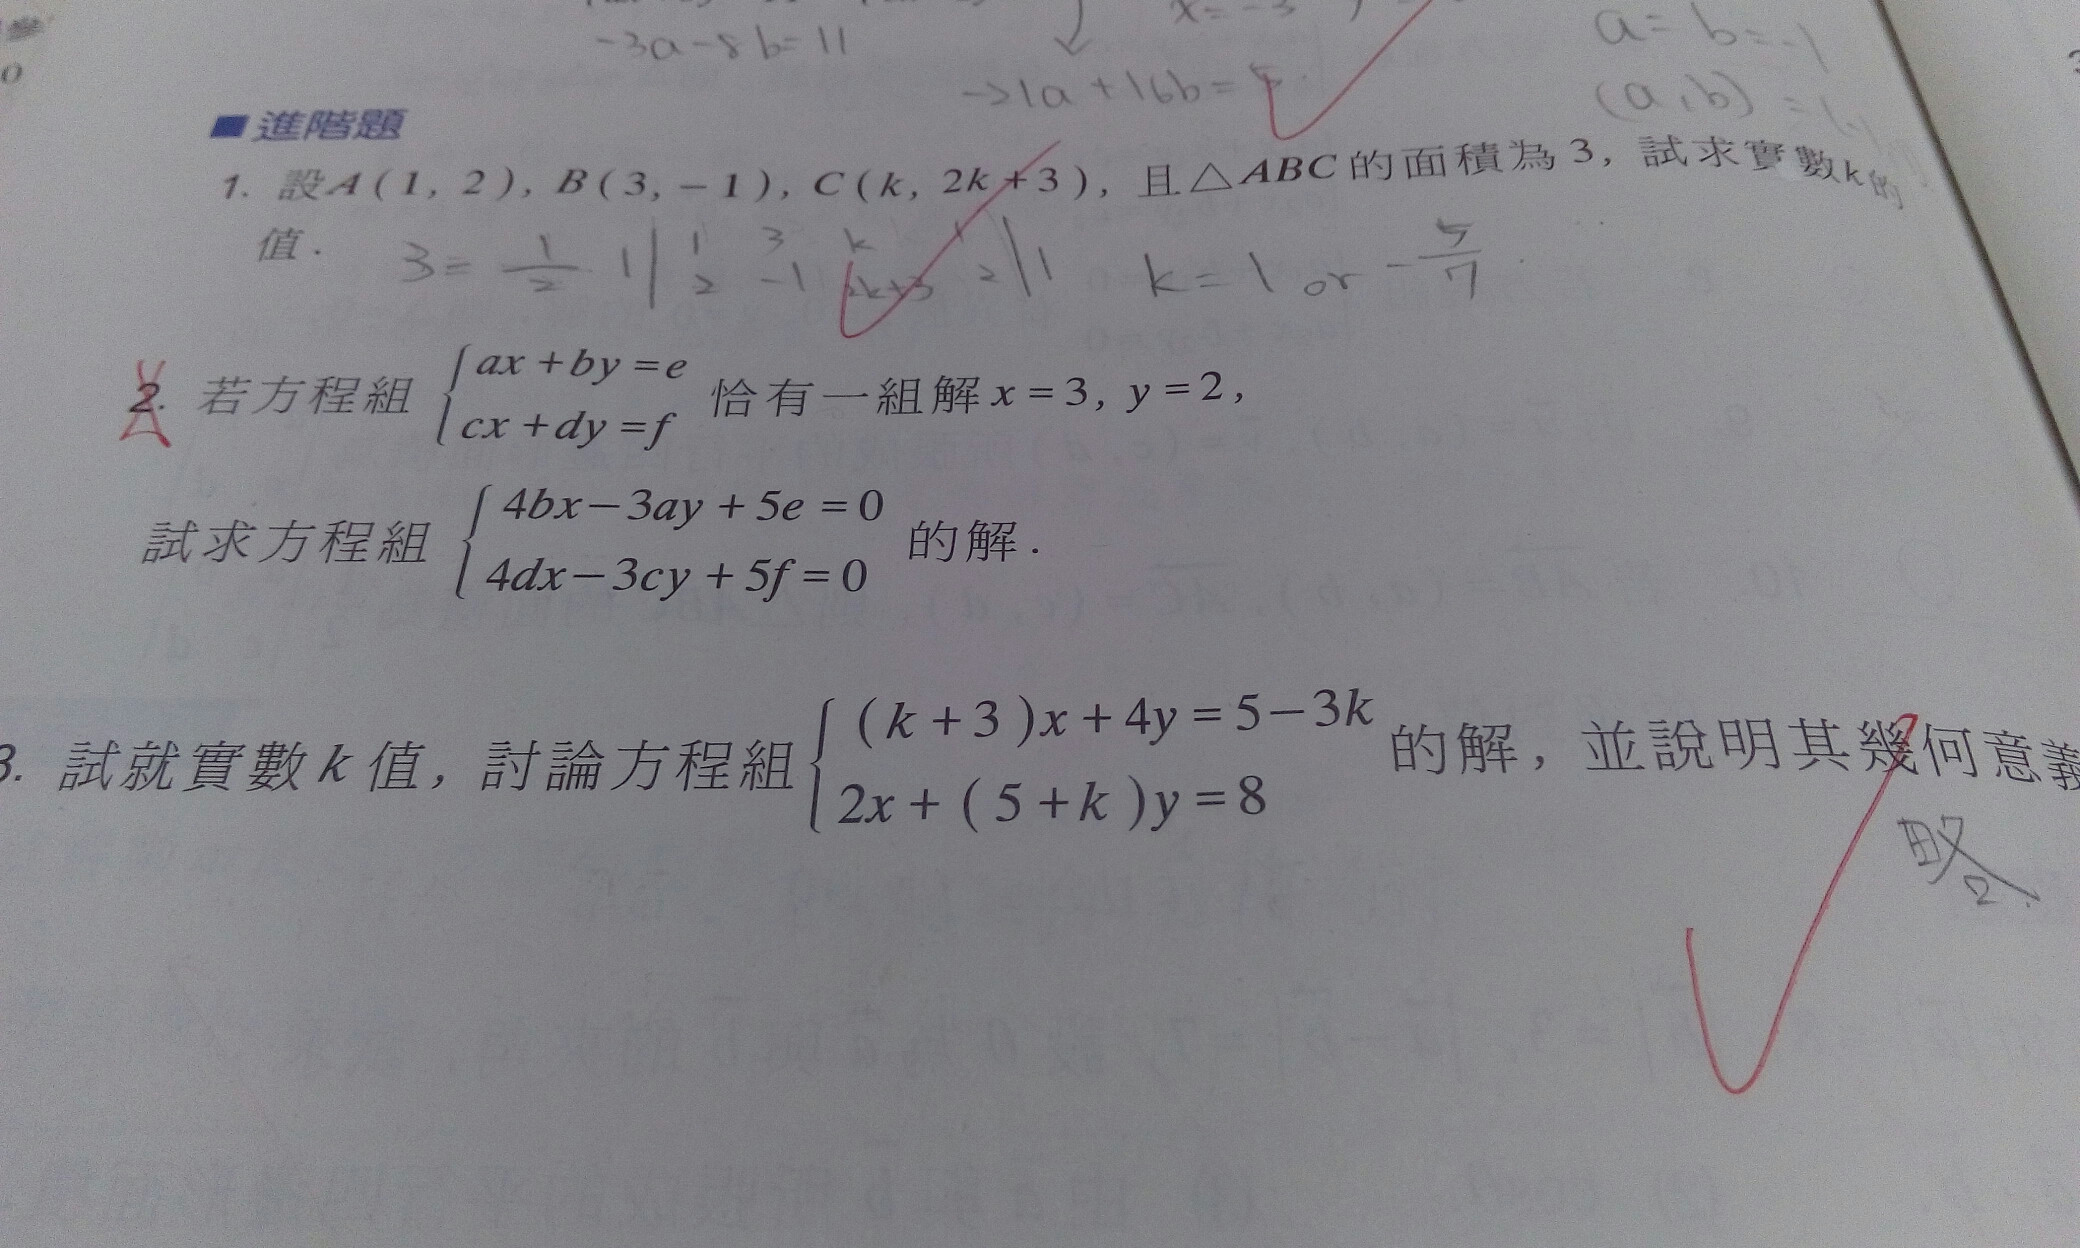 -3a-8b=11
x=-3
a= b=-1
→1a+16b=
(a,b) =
■進階題
1. 設A(1, 2), B(3, −1), C(k, 2k+3), 且△ABC的面積為3, 試求實數k的
值.
3= 1/2 | | 1 3 k 1 | |
2 -1 2k+3 2
k=1 or -5/7
2. 若方程組 { ax+by=e
cx+dy=f 恰有一組解x=3, y=2,
試求方程組 { 4bx−3ay+5e=0
4dx−3cy+5f=0 的解.
3. 試就實數k值, 討論方程組 { (k+3)x+4y=5−3k
2x+(5+k)y=8 的解, 並說明其幾何意義
略